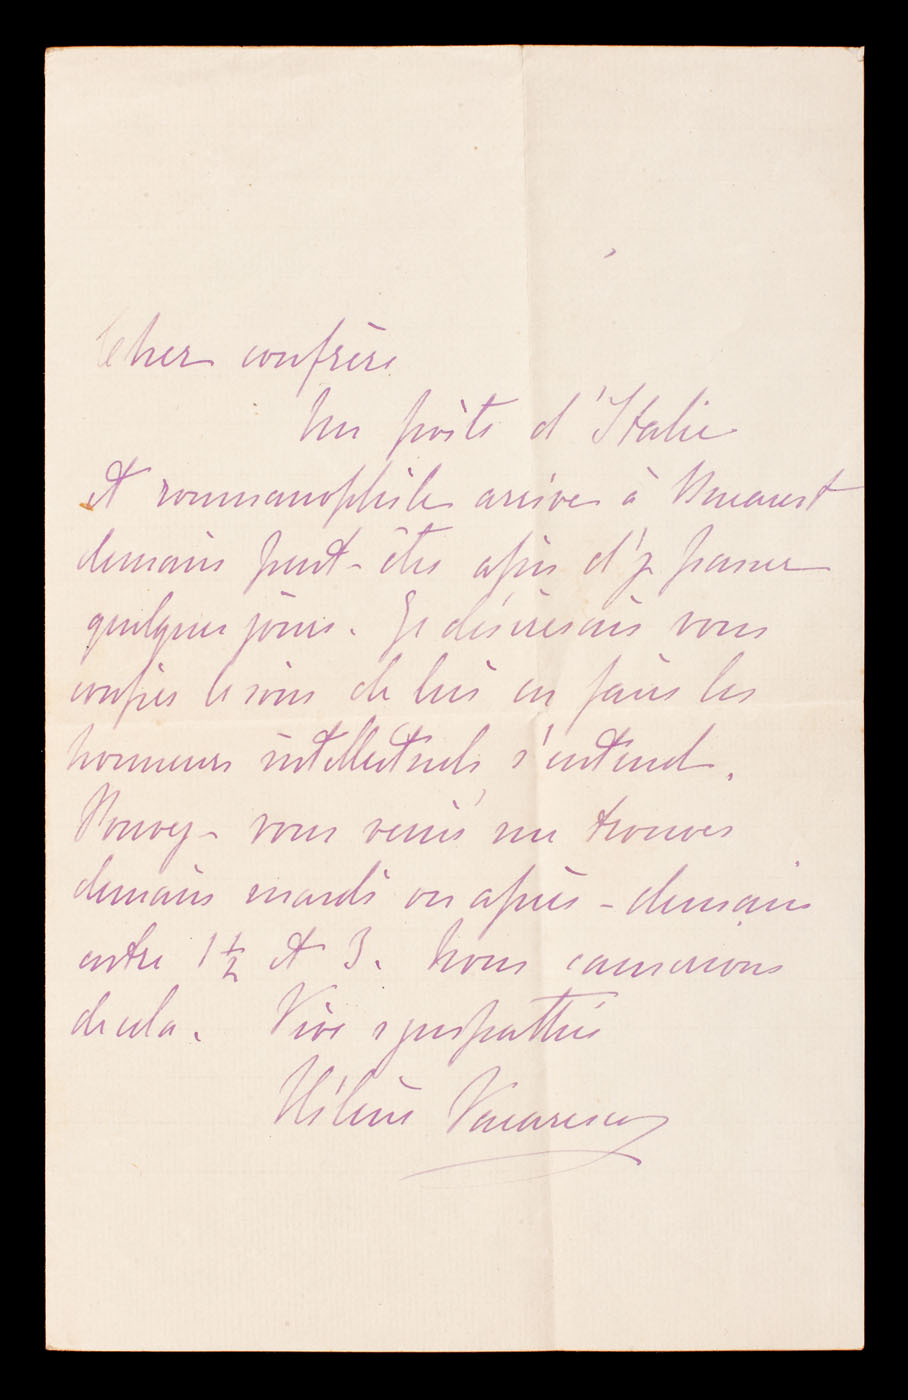 Cher confrère
Un poète d'Italie
et roumanophile arrive à Bucarest
demain peut-être afin d'y passer
quelques jours. Je désirerais vous
confier le soin de lui en faire les
honneurs intellectuels, s'entend.
Pouvez-vous venir me trouver
demain mardi ou après-demain
entre 1 1/2 et 3. Nous causerions
de cela. Vive sympathie
Hélène Vacaresco